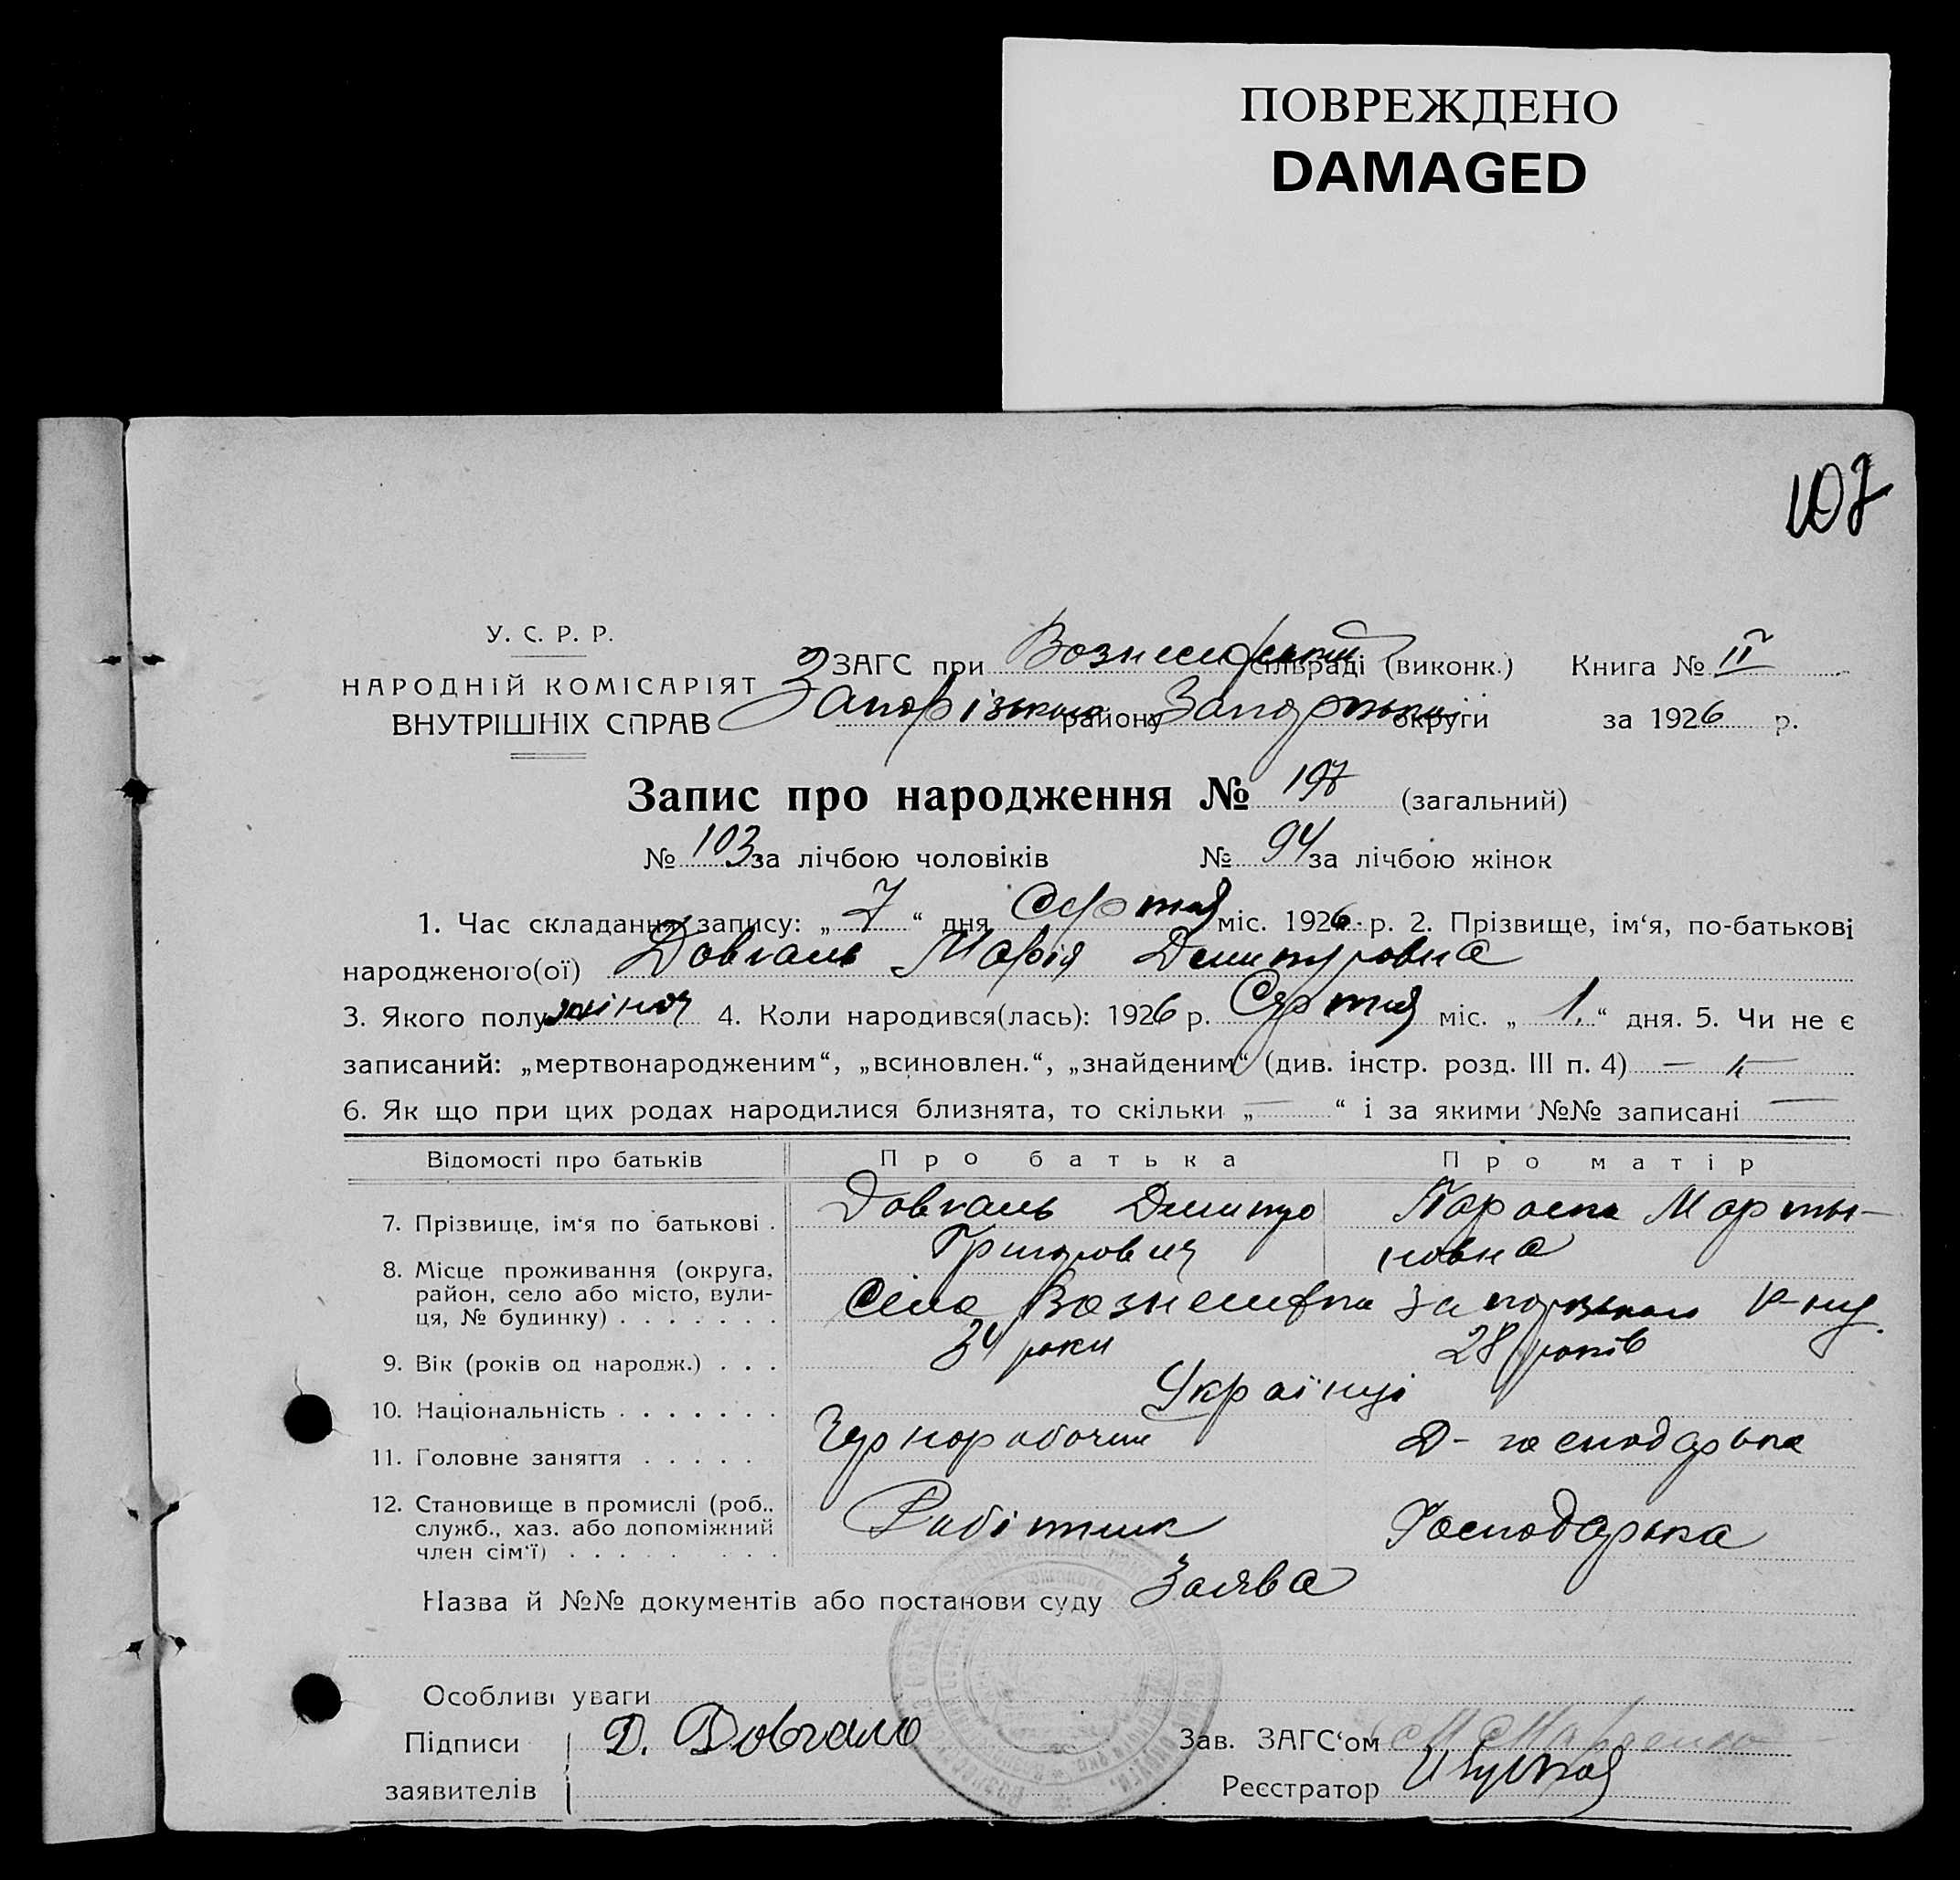 ПОВРЕЖДЕНО
DAMAGED
107
У. С. Р. Р.
НАРОДНІЙ КОМІСАРІЯТ
ВНУТРІШНІХ СПРАВ
ЗАГС при Вознесенській сільраді (виконк.) Книга № II
Запорізького району Запорізької округи за 1926 р.
Запис про народження № 197 (загальний)
№ 103 за лічбою чоловіків № 94 за лічбою жінок
1. Час складання запису: „ 7 “ дня Серпня міс. 1926 р. 2. Прізвище, ім‘я, по-батькові
народженого(ої) Довгаль Марія Дмитровна
3. Якого полу жіноч 4. Коли народився(лась): 1926 р. Серпня міс. „ 1. “ дня. 5. Чи не є
записаний: „мертвонародженим“, „всиновлен.“, „знайденим“ (див. інстр. розд. III п. 4) —
6. Як що при цих родах народилися близнята, то скільки „ — “ і за якими №№ записані —
Відомості про батьків Про батька Про матір
7. Прізвище, ім‘я по батькові . Довгаль Дмитро Параска Марты-
Григорович новна
8. Місце проживання (округа,
район, село або місто, вули-
ця, № будинку) . . . . . . . Село Вознесенка Запорізького р-ну
9. Вік (років од народж.) . . . 34 роки 28 років
10. Національність . . . . . . . Українці
11. Головне заняття . . . . . Чорнорабочий Д- господарька
12. Становище в промислі (роб.,
служб., хаз. або допоміжний
член сім‘ї) . . . . . . . Робітник Господарька
Назва й №№ документів або постанови суду Заява
Особливі уваги
Підписи Д. Довгаль Зав. ЗАГС‘ом
заявителів Реєстратор